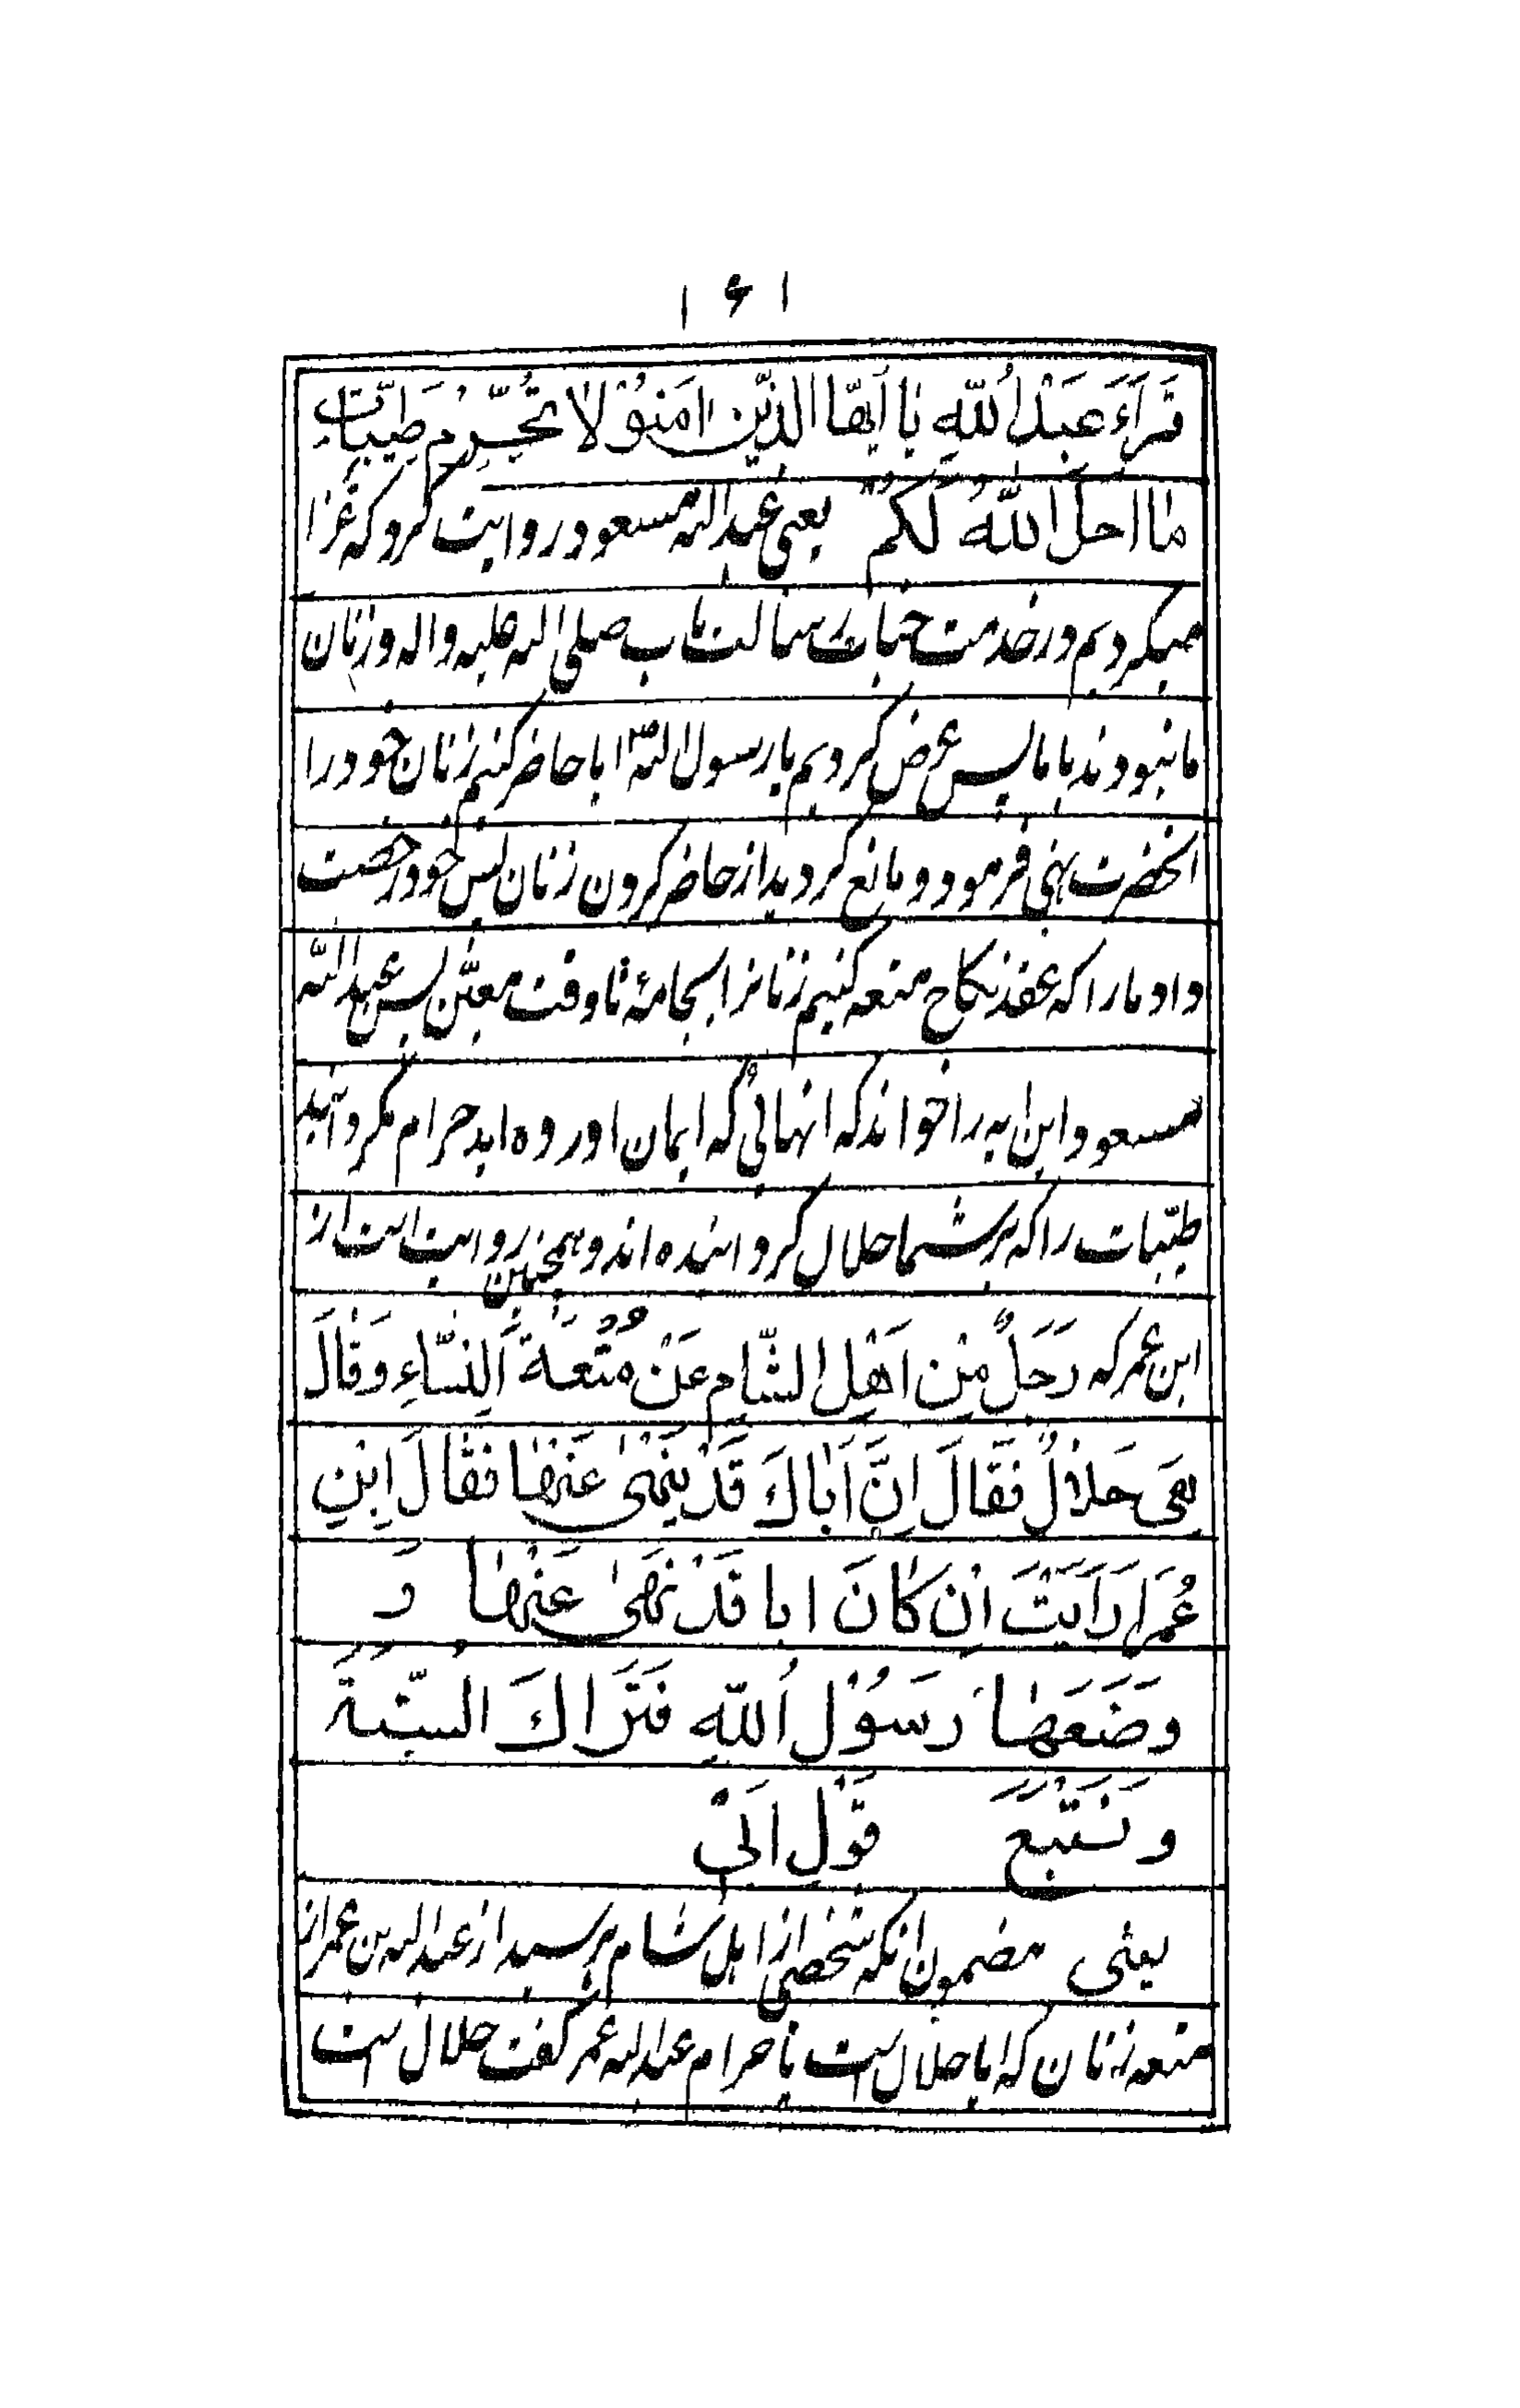 ۱۶۱
قَرَاَءَ عَبْدُ اللّٰهِ یَا اَیُّهَا الَّذِیْنَ اٰمَنُوْ لَا تُحَرِّم طَیِّبَاتِ
مٰا اَحَلَّ اللّٰهُ لَکُمْ یعنی عبد اللّه مسعود روایت کرد که غزا
میکردیم در خدمت جناب رسالت ماب صلی اللّه علیه و اله و زنان
ما نبودند با ما پس عرض کردیم یا رسول اللّه ایا حاضر کنیم زنان خود را
انحضرت نهی فرمود و مانع گردید از حاضر کردن زنان پس خود رخصت
داد ما را که عقد نکاح متعه کنیم زنانرا بجامهٔ تا وقت معیّن پس عبد اللّه
مسعود این ایه را خواند که انهائی که ایمان اورده اید حرام مگردانید
طیّبات را که بر شما حلال گردانیده اند و همچنین روایت است از
ابن عمر که رَجَلٌ مِنْ اَهْلِ الشّامِ عَنْ مُتْعَةِ النِّسَّاءِ وَقٰالَ
هِیَ حَلٰالٌ فَقَالَ اِنَّ اَبٰاكَ قَدْ یَنْهٰی عَنْهٰا فَقٰالَ اِبْنِ
عُمَرَ اَرَاَیْتَ اِنْ کٰانَ ابا قَدْ نَهٰی عَنْهٰا وَ
وَضَعَهٰا رَسُوْلُ اللّٰهِ فَتَرَاكَ السُّنَّةُ
وَنَتَّبِعَ قَوْلِ اَبِیْ
یعنی مضمون انکه شخصی از اهل شام پرسید از عبد اللّه بن عمر از
متعه زنان که ایا حلال است یا حرام عبد اللّه عمر گفت حلال است